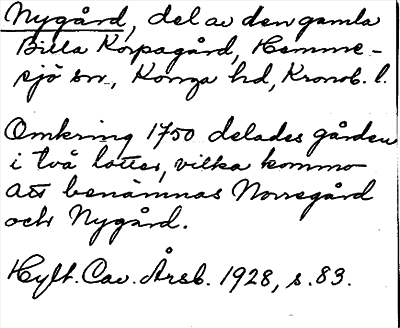 Nygård, del av den gamla
Billa Korpagård, Hemme-
sjö sn, Konga hd, Kronob. l.
Omkring 1750 delades gården
i två lotter, vilka kommo
att benämnas Norregård
och Nygård.
Hylt. Cav. Årsb. 1928, s. 83.